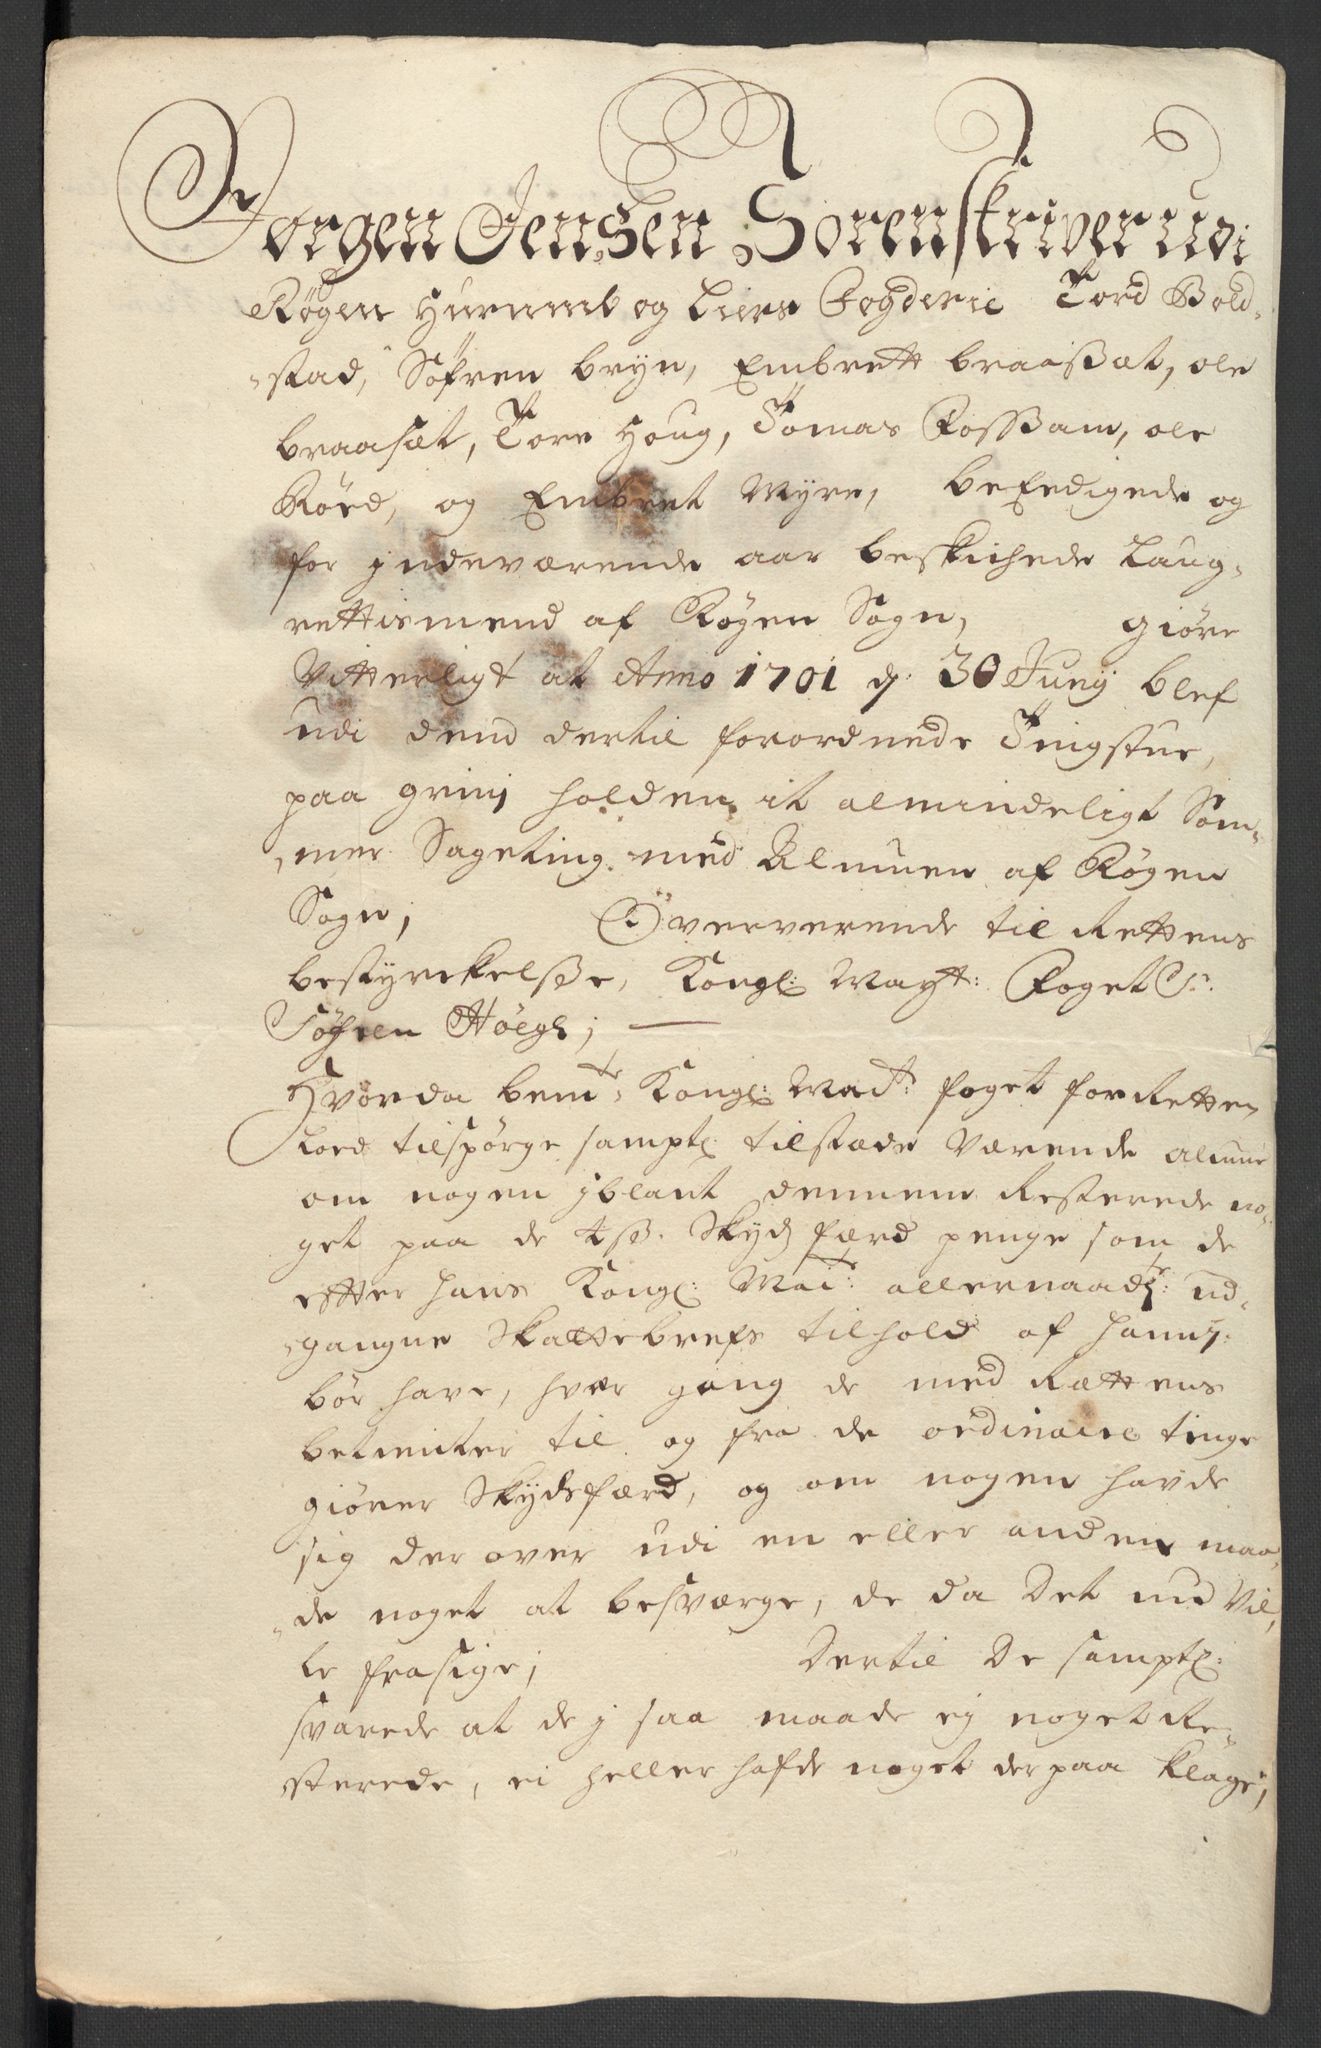 Jørgen Jensen Sorenskriver udi
Røgen Hurumb og Liers Fogderie Tord Bold-
-stad, Søfren bryn, Embrett braaßæt, ole
braasæt, Tore Houg, Tomas Roßam, ole
Røed, og Embret Myre, beEedigede og
for jndeværende aar beskichede Laug-
rettismend af Røgen Sogn, giøre
Vitterligt at Anno 1701 d. 30 Junij blef
udi dend dertil forordnede Tingstue,
paa grinj holden it almindeligt Som-
-mer Sageting med Almuen af Røgen
Sogn; Oververende til Rettens
bestyrckelße, Kongl: Mayt: Foget Sr.
Søfren Høegh;
Hvorda bemte: Kongl: Mait: foget for Retten
Loed tilspørge samptl: tilstæde Værende almue
om nogen jblant dennem Resterede no-
get paa de 4 sß. Skydsfærd penge som de
efter hans Kongl: Mait: allernaadst: ud-
-gangne Skattebrefs tilhold af hannem
bør have, hver gang de med Rættens
betienter til og fra de ordinaire tinge
giører Skydsfærd, og om nogen havde
sig der over udi en eller anden maa-
-de noget at besværge, de da Det nu Vil-
le frasige; Dertil De samptl:
svarede at de j saa maade ej noget Re-
sterede, ei heller hafde noget der paa klage;